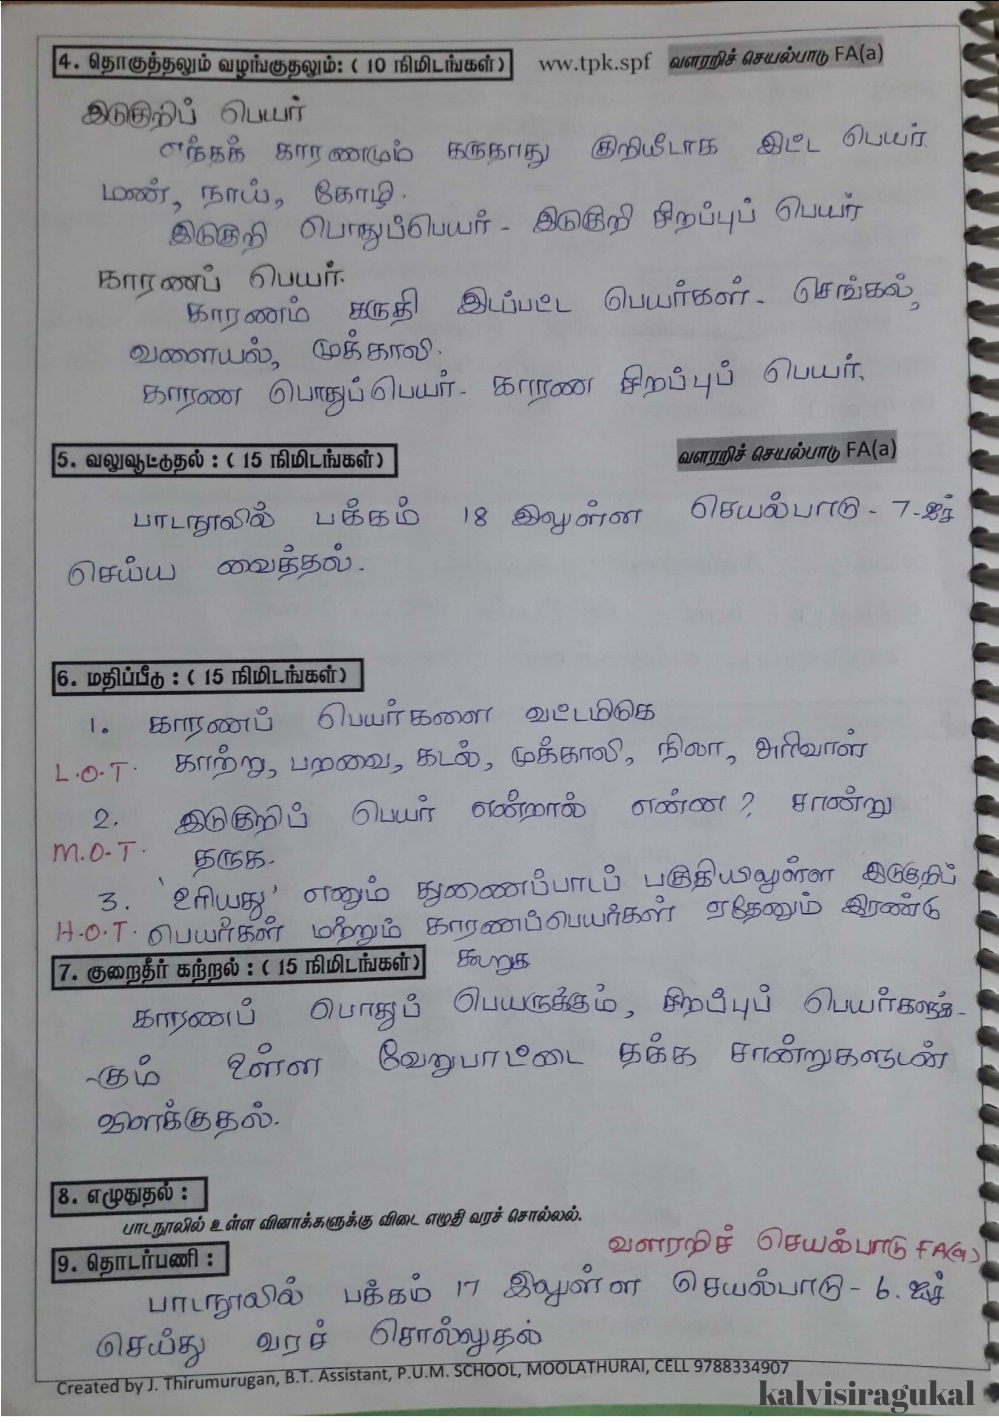 4. தொகுத்தலும் வழங்குதலும்: ( 10 நிமிடங்கள் ) ww.tpk.spf வளரறிச் செயல்பாடு FA(a)
இடுகுறிப் பெயர்
எந்தக் காரணமும் கருதாது குறியீடாக இட்ட பெயர்.
மண், நாய், கோழி.
இடுகுறி பொதுப்பெயர் - இடுகுறி சிறப்புப் பெயர்
காரணப் பெயர்.
காரணம் கருதி இடப்பட்ட பெயர்கள் - செங்கல்,
வளையல், முக்காலி.
காரண பொதுப்பெயர் - காரண சிறப்புப் பெயர்.
5. வலுவூட்டுதல் : ( 15 நிமிடங்கள் ) வளரறிச் செயல்பாடு FA(a)
பாடநூலில் பக்கம் 18 இலுள்ள செயல்பாடு - 7-ஐச்
செய்ய வைத்தல்.
6. மதிப்பீடு : ( 15 நிமிடங்கள் )
1. காரணப் பெயர்களை வட்டமிடுக
L.O.T. காற்று, பறவை, கடல், முக்காலி, நிலா, அரிவாள்
2. இடுகுறிப் பெயர் என்றால் என்ன? சான்று
M.O.T. தருக.
3. 'உரியது' எனும் துணைப்பாடப் பகுதியிலுள்ள இடுகுறிப்
H.O.T. பெயர்கள் மற்றும் காரணப்பெயர்கள் ஏதேனும் இரண்டு
கூறுக
7. குறைதீர் கற்றல் : ( 15 நிமிடங்கள் )
காரணப் பொதுப் பெயருக்கும், சிறப்புப் பெயர்களுக்-
கும் உள்ள வேறுபாட்டை தக்க சான்றுகளுடன்
விளக்குதல்.
8. எழுதுதல் :
பாடநூலில் உள்ள வினாக்களுக்கு விடை எழுதி வரச் சொல்லல்.
வளரறிச் செயல்பாடு FA(a)
9. தொடர்பணி :
பாடநூலில் பக்கம் 17 இலுள்ள செயல்பாடு - 6. ஐச்
செய்து வரச் சொல்லுதல்
Created by J. Thirumurugan, B.T. Assistant, P.U.M. SCHOOL, MOOLATHURAI, CELL 9788334907
kalvisiragukal